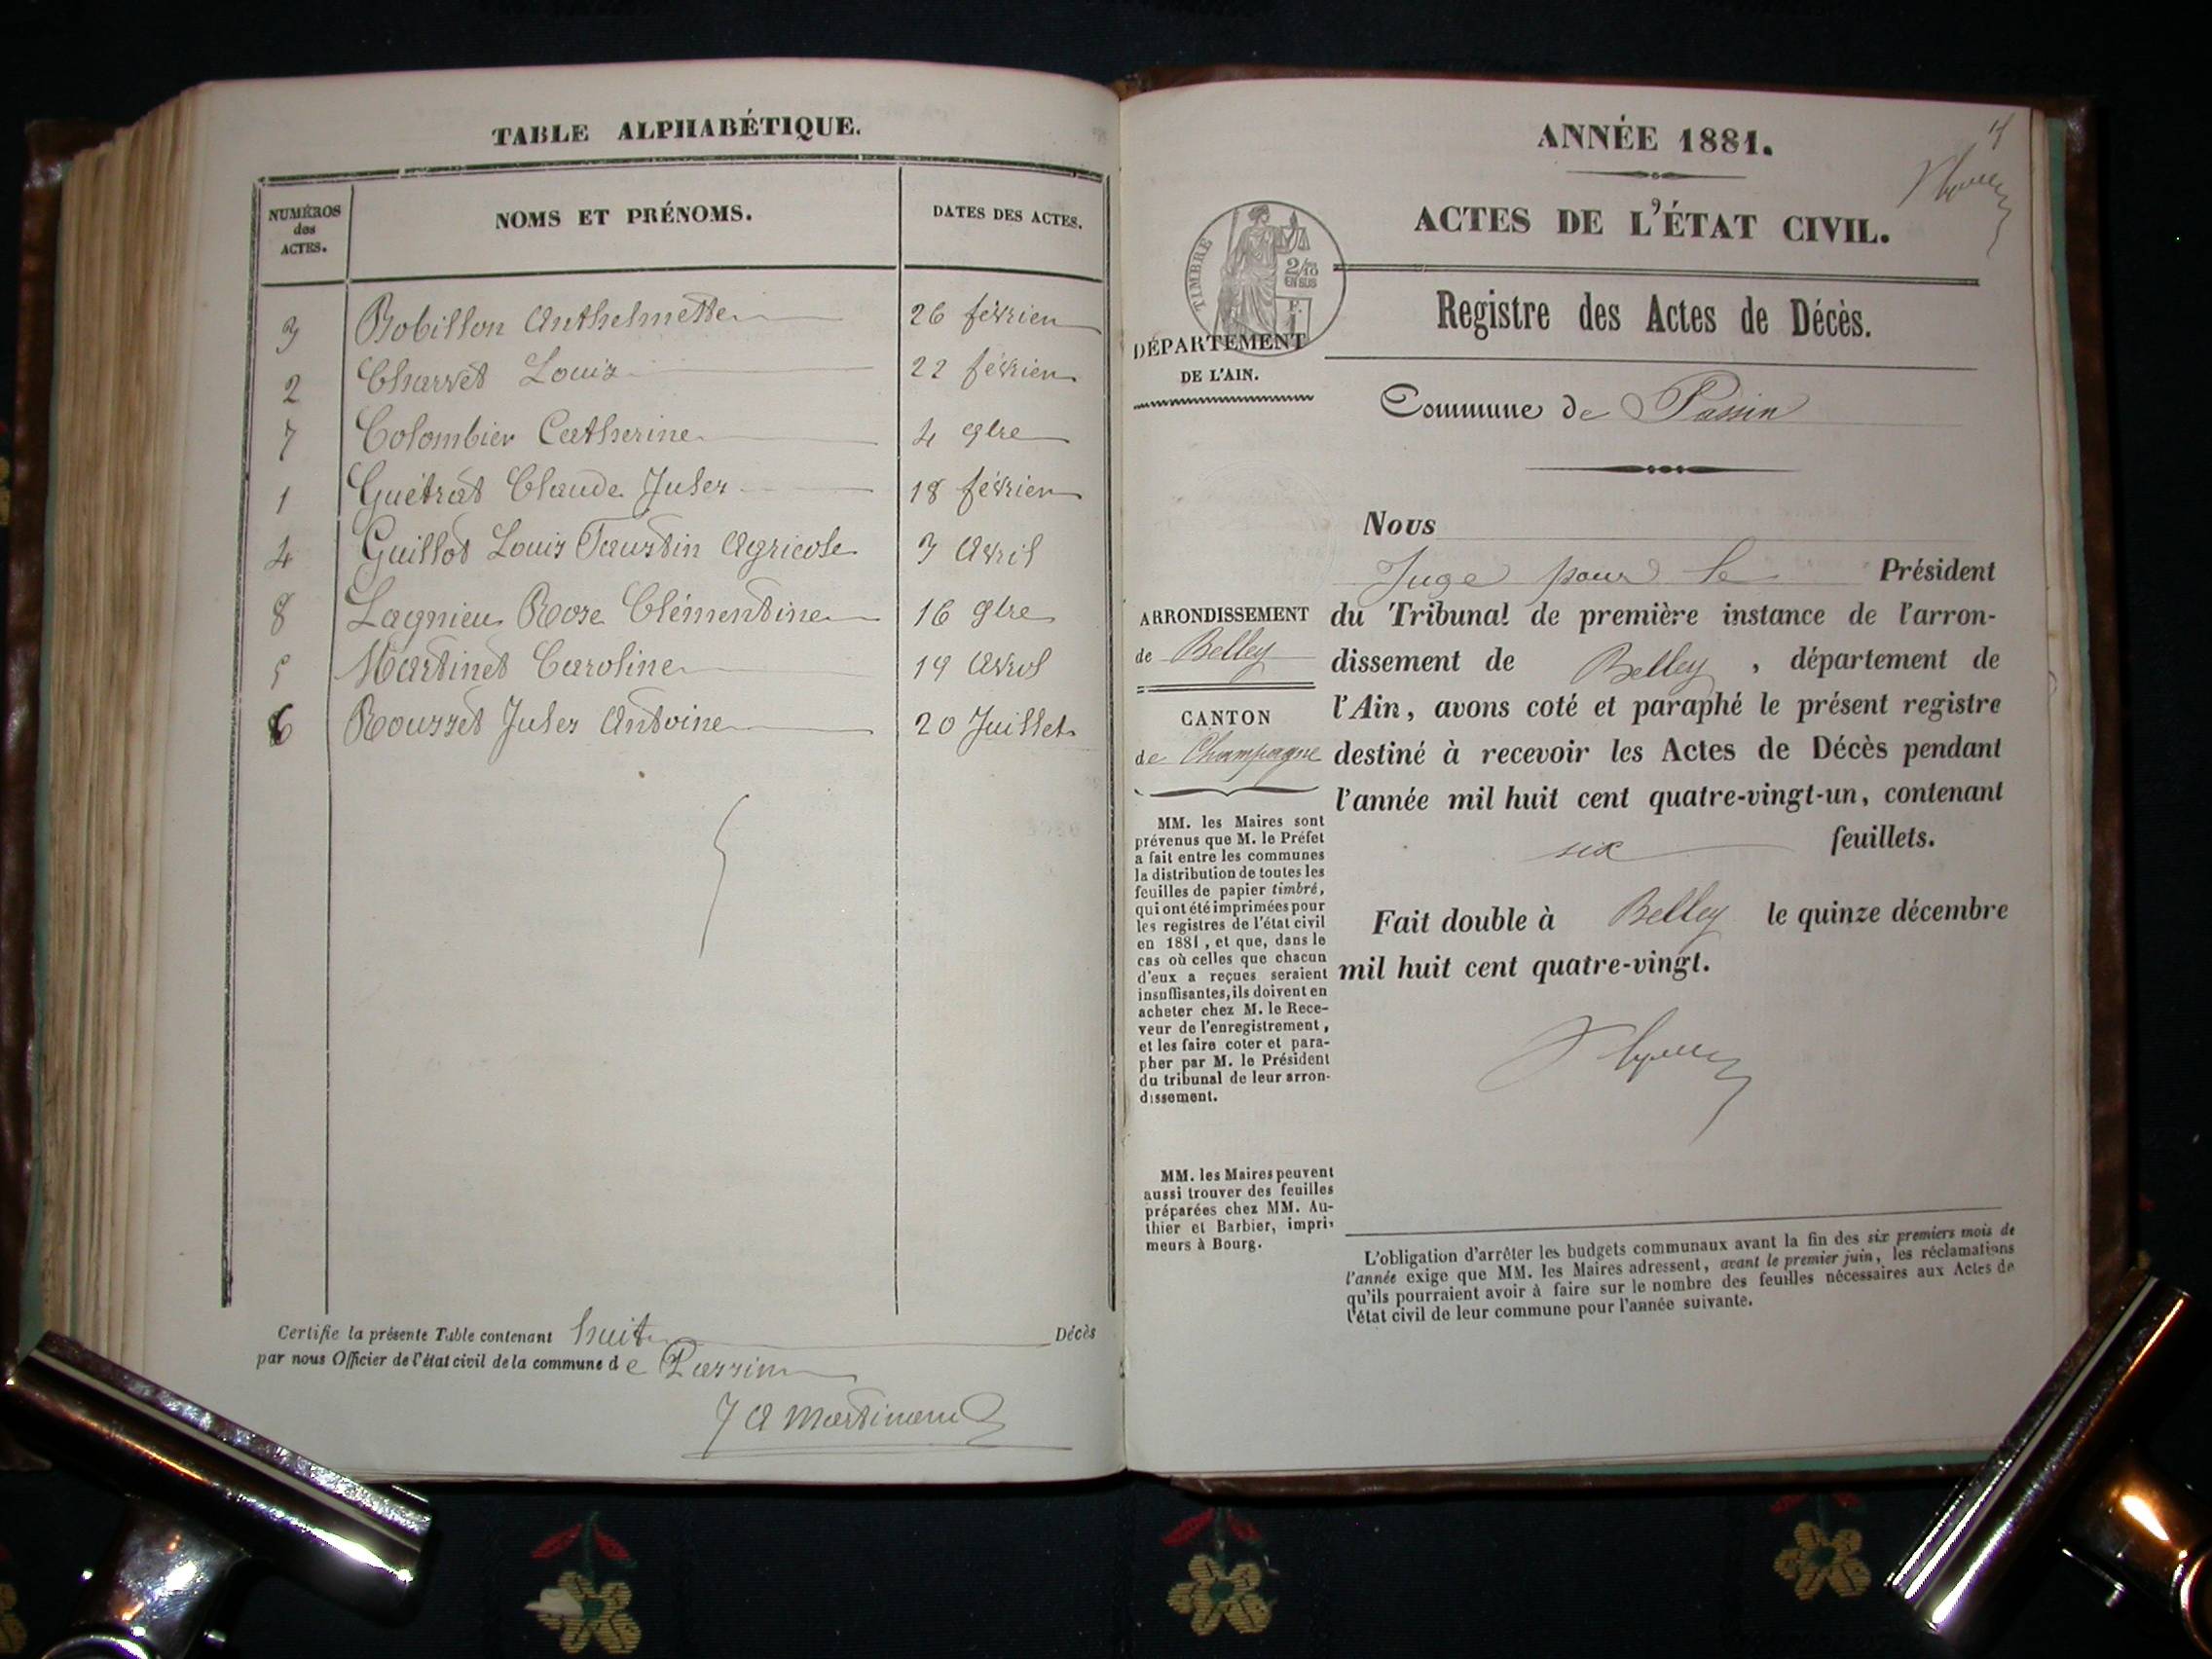 TABLE ALPHABÉTIQUE.
NUMÉROS des ACTES. NOMS ET PRÉNOMS. DATES DES ACTES.
3 Bobillon Anthelmette 26 février
2 Charvet Louis 22 février
7 Colombier Catherine 4 9bre
1 Guétrat Claude Jules 18 février
4 Guillot Louis Faustin Agricole 3 Avril
8 Lagnieu Rose Clémentine 16 9bre
5 Martinet Caroline 19 Avril
6 Rousset Jules Antoine 20 Juillet
Certifie la présente Table contenant huit Décès
par nous Officier de l'état civil de la commune de Passin
ANNÉE 1881.
ACTES DE L'ÉTAT CIVIL.
TIMBRE
2/10
EN SUS
Registre des Actes de Décès.
DÉPARTEMENT
DE L'AIN.
Commune de Passin
ARRONDISSEMENT
de Belley
CANTON
de Champagne
MM. les Maires sont
prévenus que M. le Préfet
a fait entre les communes
la distribution de toutes les
feuilles de papier timbré,
qui ont été imprimées pour
les registres de l'état civil
en 1881, et que, dans le
cas où celles que chacun
d'eux a reçues seraient
insuffisantes, ils doivent en
acheter chez M. le Rece-
veur de l'enregistrement,
et les faire coter et para-
pher par M. le Président
du tribunal de leur arron-
dissement.
MM. les Maires peuvent
aussi trouver des feuilles
préparées chez MM. Au-
thier et Barbier, impri-
meurs à Bourg.
Nous
Juge pour le Président
du Tribunal de première instance de l'arron-
dissement de Belley, département de
l'Ain, avons coté et paraphé le présent registre
destiné à recevoir les Actes de Décès pendant
l'année mil huit cent quatre-vingt-un, contenant
six feuillets.
Fait double à Belley le quinze décembre
mil huit cent quatre-vingt.
L'obligation d'arrêter les budgets communaux avant la fin des six premiers mois de
l'année exige que MM. les Maires adressent, avant le premier juin, les réclamations
qu'ils pourraient avoir à faire sur le nombre des feuilles nécessaires aux Actes de
l'état civil de leur commune pour l'année suivante.